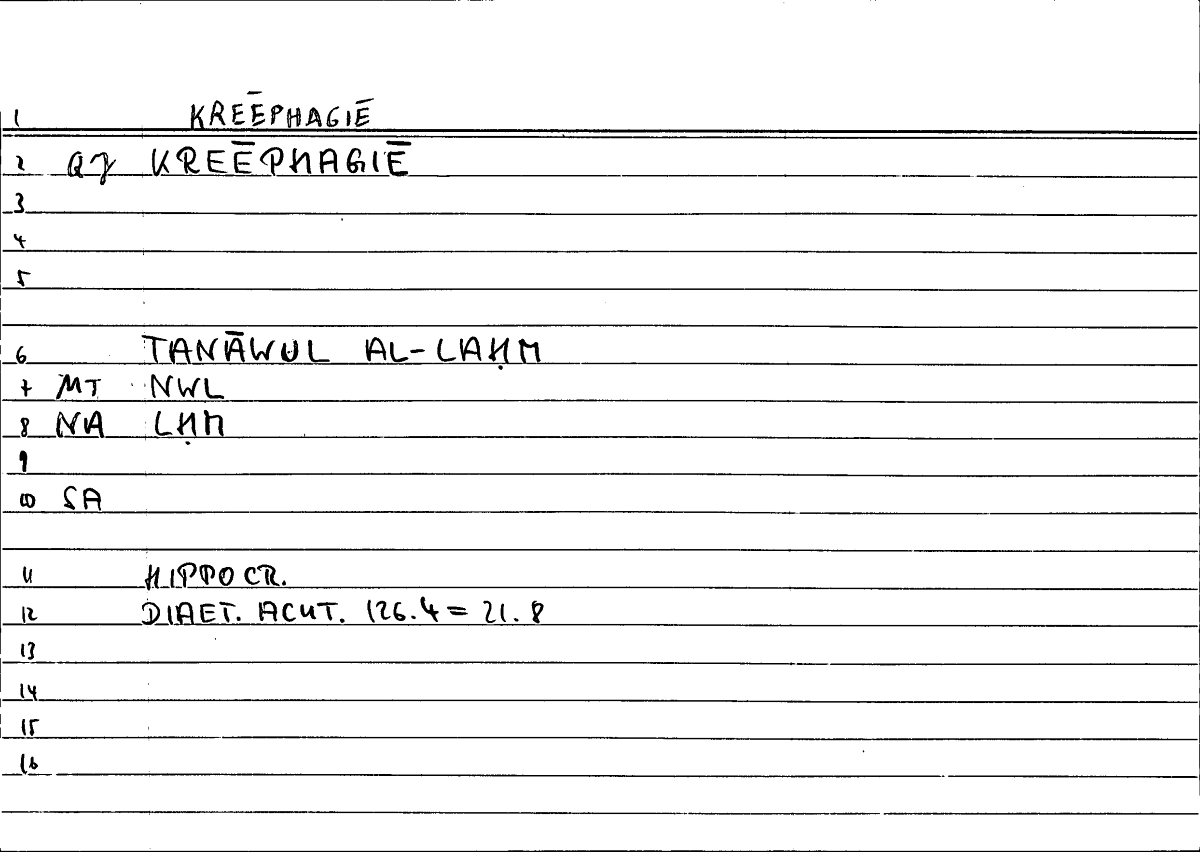 1 KREĒPHAGIĒ
2 KREĒPHAGIĒ
3
4
5
6 TANĀWUL AL-LAḤM
7 MT NWL
8 NA LḤM
9
10 SA
11 HIPPOCR.
12 DIAET. ACUT. 126.4 = 21.8
13
14
15
16